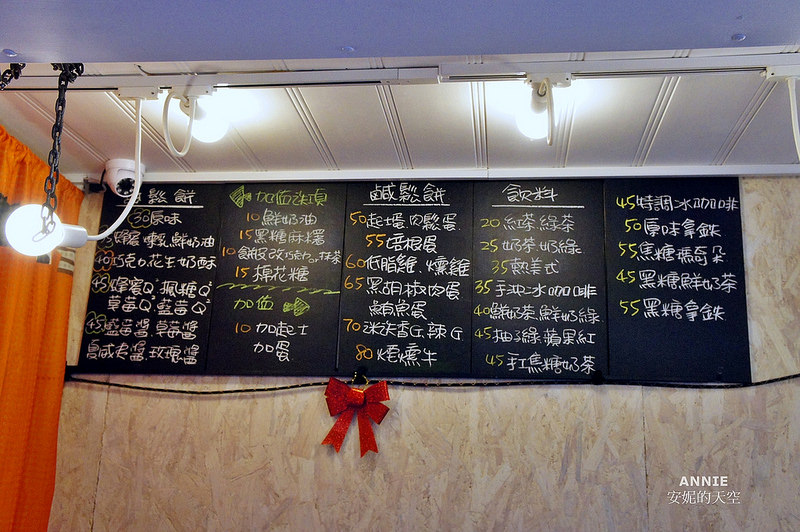 鬆餅
38原味
鮮奶油
40巧克力.花生.奶酥
45蜂蜜Q².楓糖Q²
草莓Q².藍莓Q²
48藍莓醬.草莓醬
夏威夷醬.玫瑰醬
加值選項
10鮮奶油
15黑糖麻糬
10餅皮改巧克力or抹茶
15棉花糖
加值
10加起士
加蛋
鹹鬆餅
50起士蛋.肉鬆蛋
55培根蛋
60低脂雞.燻雞
65黑胡椒肉蛋
鮪魚蛋
70迷迭香G.辣G
80煙燻牛
飲料
20紅茶.綠茶
25奶茶.奶綠
35熱美式
35手沖冰咖啡
40鮮奶茶.鮮奶綠
45柚子綠.蘋果紅
45手工焦糖奶茶
45特調冰咖啡
50原味拿鐵
55焦糖瑪奇朵
45黑糖鮮奶茶
55黑糖拿鐵
ANNIE
安妮的天空